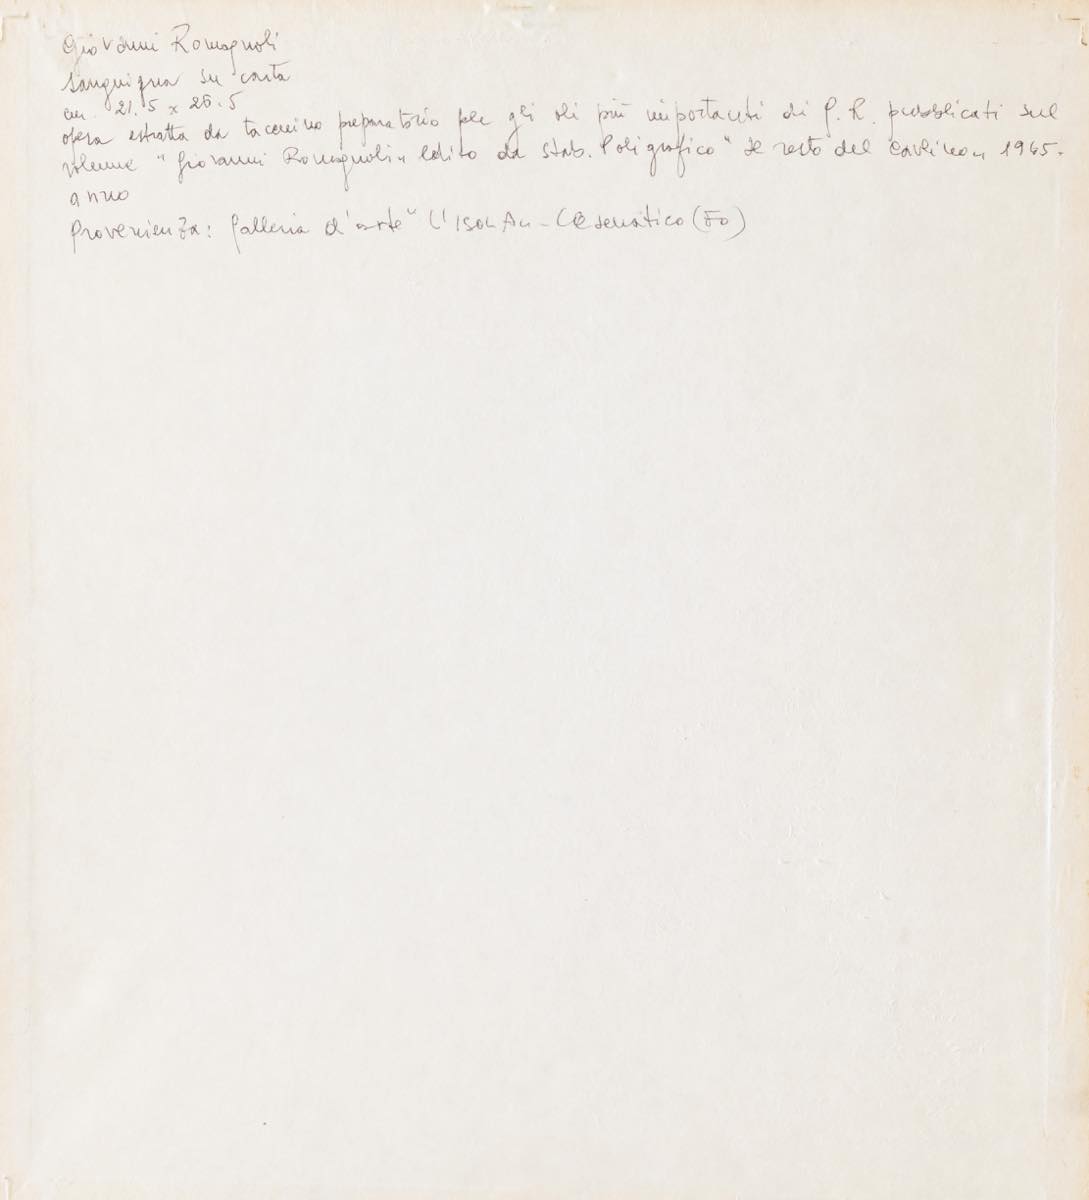 Giovanni Romagnoli
sanguigna su carta
cm. 21.5 x 26.5
opera estratta da taccuino preparatorio per gli oli più importanti di G. R. pubblicati sul
volume "Giovanni Romagnoli" edito da Stab. Poligrafico "Il resto del Carlino" 1965.
anno
Provenienza: Galleria d'arte "L'ISOLA" - Cesenatico (Fo)